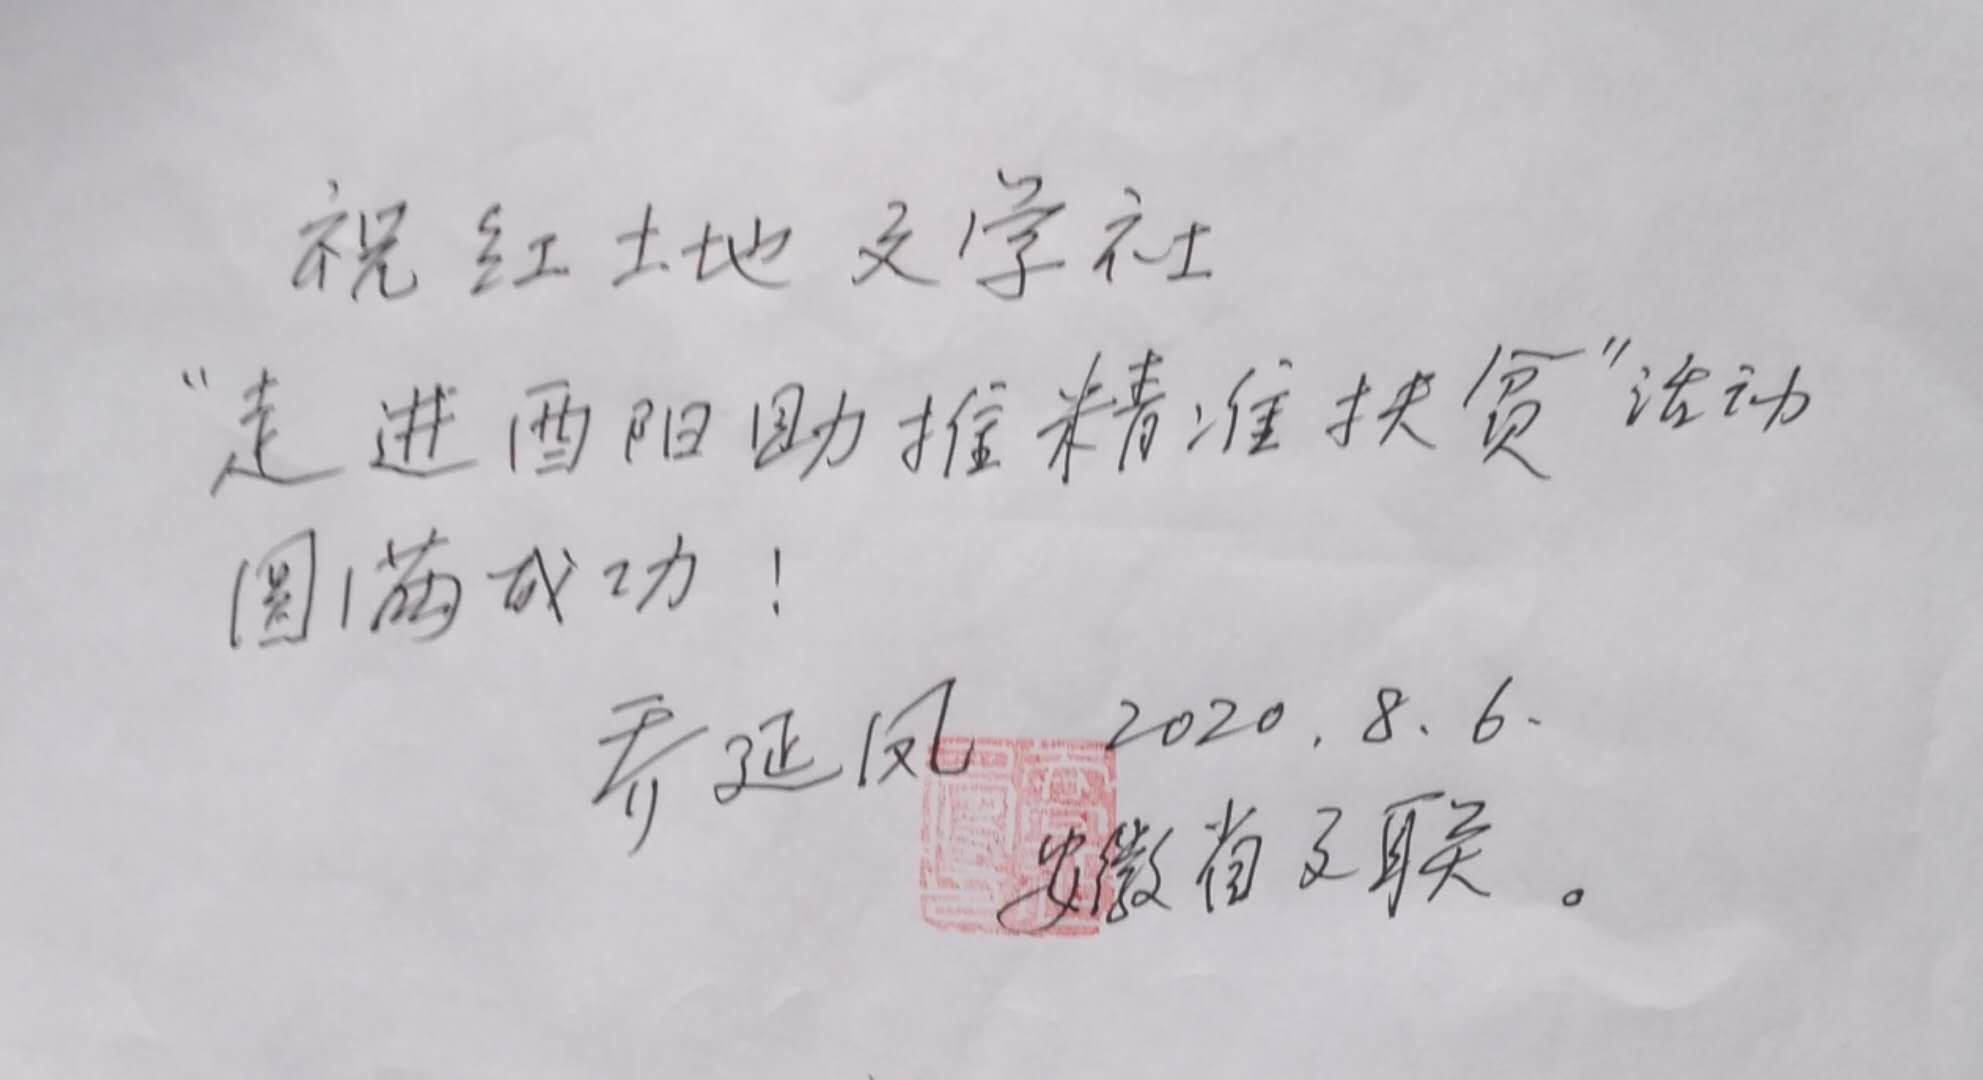 祝红土地文学社
“走进酉阳助推精准扶贫”活动
圆满成功！
乔延凤 2020.8.6.
安徽省文联。